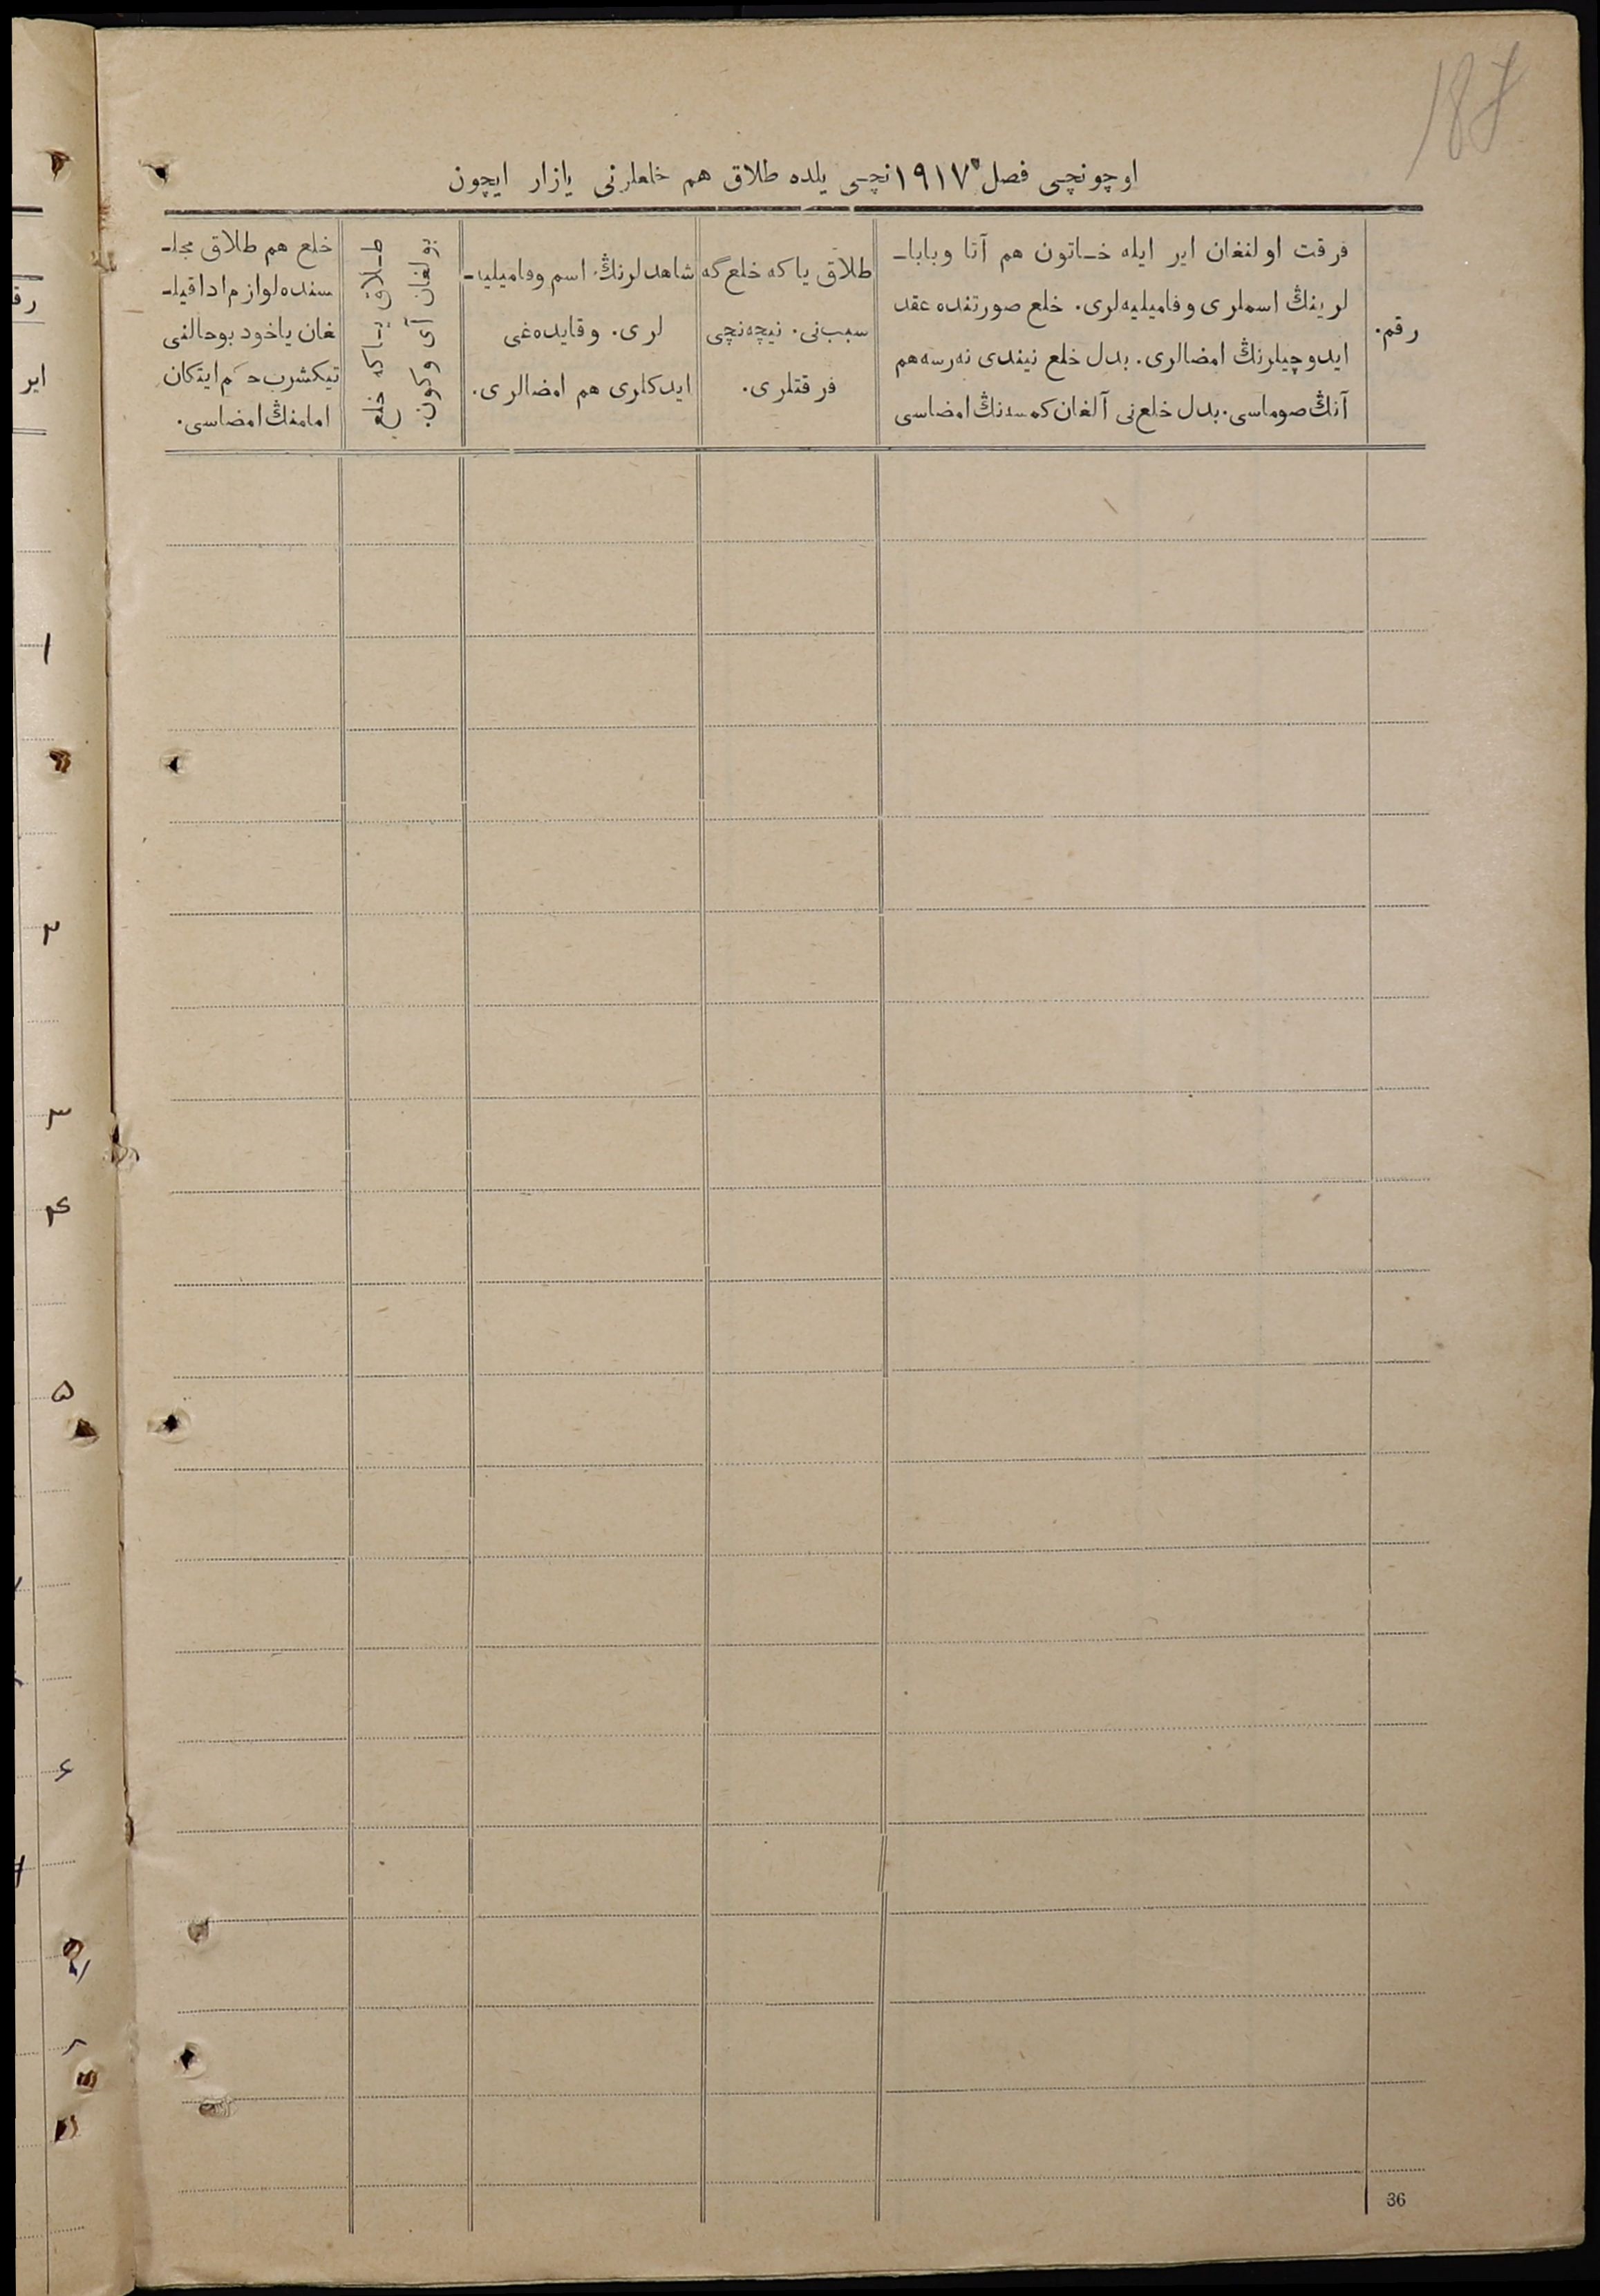 187
اوچونچی فصل ١٩١٧ نچی یلده طلاق هم خلعلرنی یازار ایچون
رقم.
فرقت اولنغان ایر ایله خاتون هم آتا وبابا-
لرینڭ اسملری وفامیلیه‌لری. خلع صورتنده عقد
ایدوچیلرنڭ امضالری. بدل خلع نیندی نه‌رسه‌هم
آنڭ صوماسی. بدل خلع‌نی آلغان کمسه‌نڭ امضاسی
طلاق یاکه خلع‌گه
سبب‌نی. نیچه‌نچی
فرقتلری.
شاهدلرنڭ اسم وفامیلیه-
لری. وقایده‌غی
ایدکلری هم امضالری.
طلاق یاکه خلع
بولغان آی وکون.
خلع هم طلاق مجلـ
سنده‌لوازم‌اداقیلـ
غان یاخود بوحالنی
تیکشرب حکم ایتکان
امامنڭ امضاسی.
36
رقـ
ایر
١
٢
٣
۴
۵
۶
٨